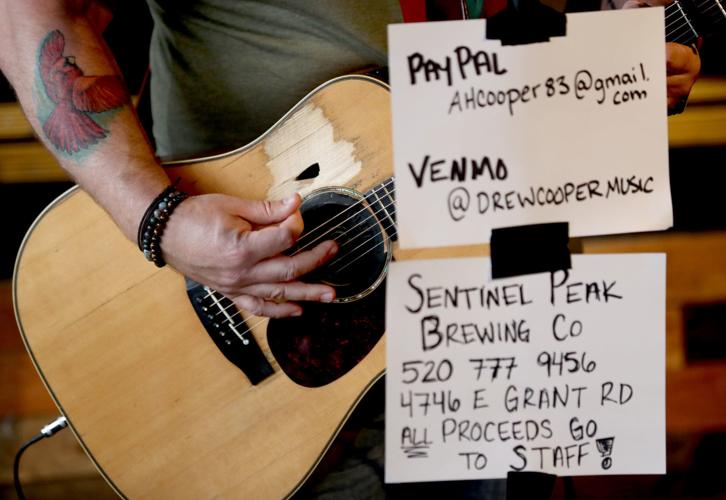 PAYPAL
AHCooper83@gmail.
com
VENMO
@DREWCOOPERMUSIC
SENTINEL PEAK
BREWING CO
520 777 9456
4746 E GRANT RD
ALL PROCEEDS GO
TO STAFF!